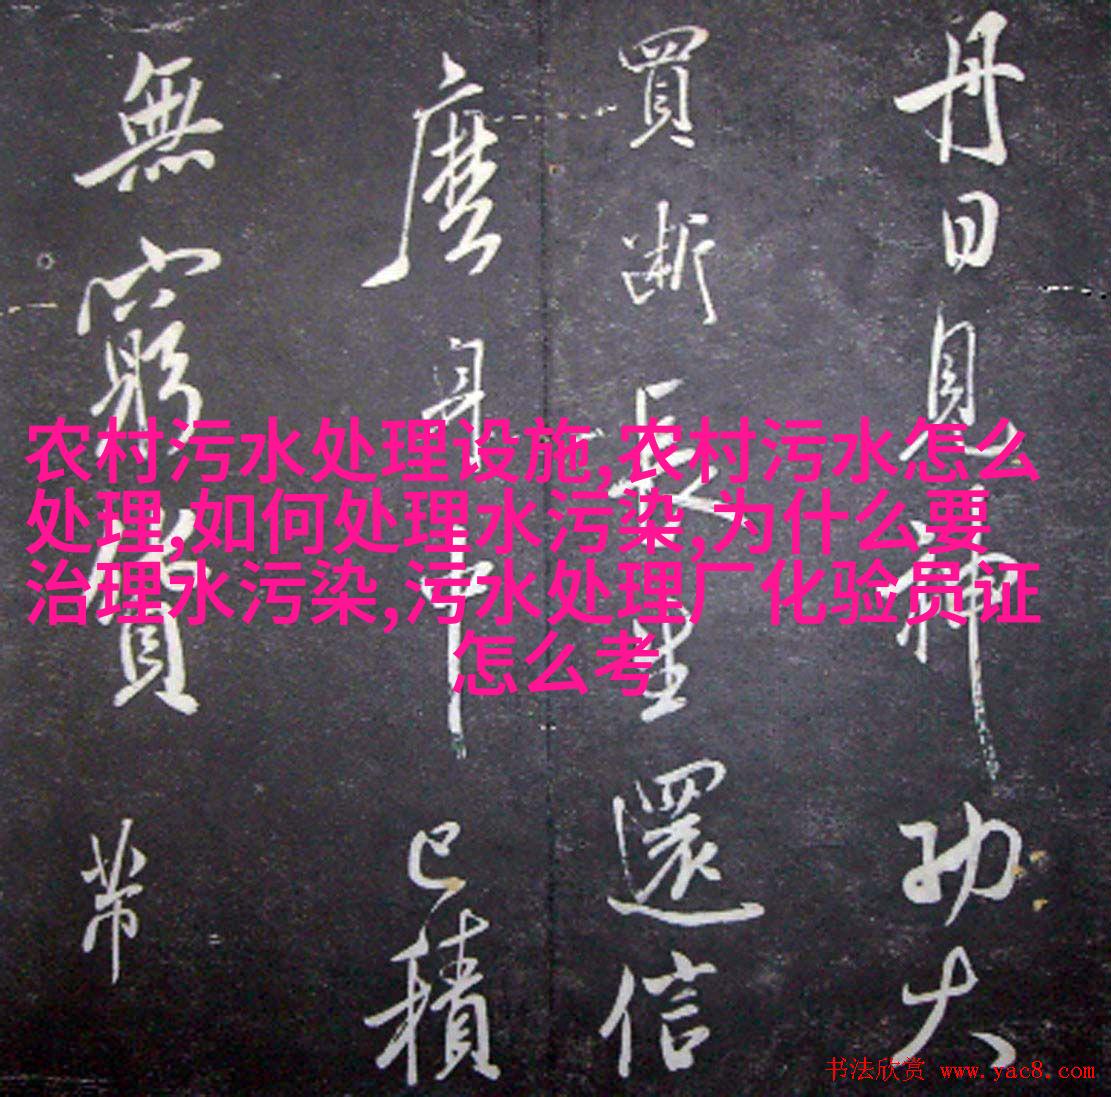 丹日見神功大
買斷長生還信
麼身中已積
無窮貨帶
农村污水处理设施,农村污水怎么
处理,如何处理水污染,为什么要
治理水污染,污水处理厂化验员证
怎么考
书法欣赏 www.yac8.com